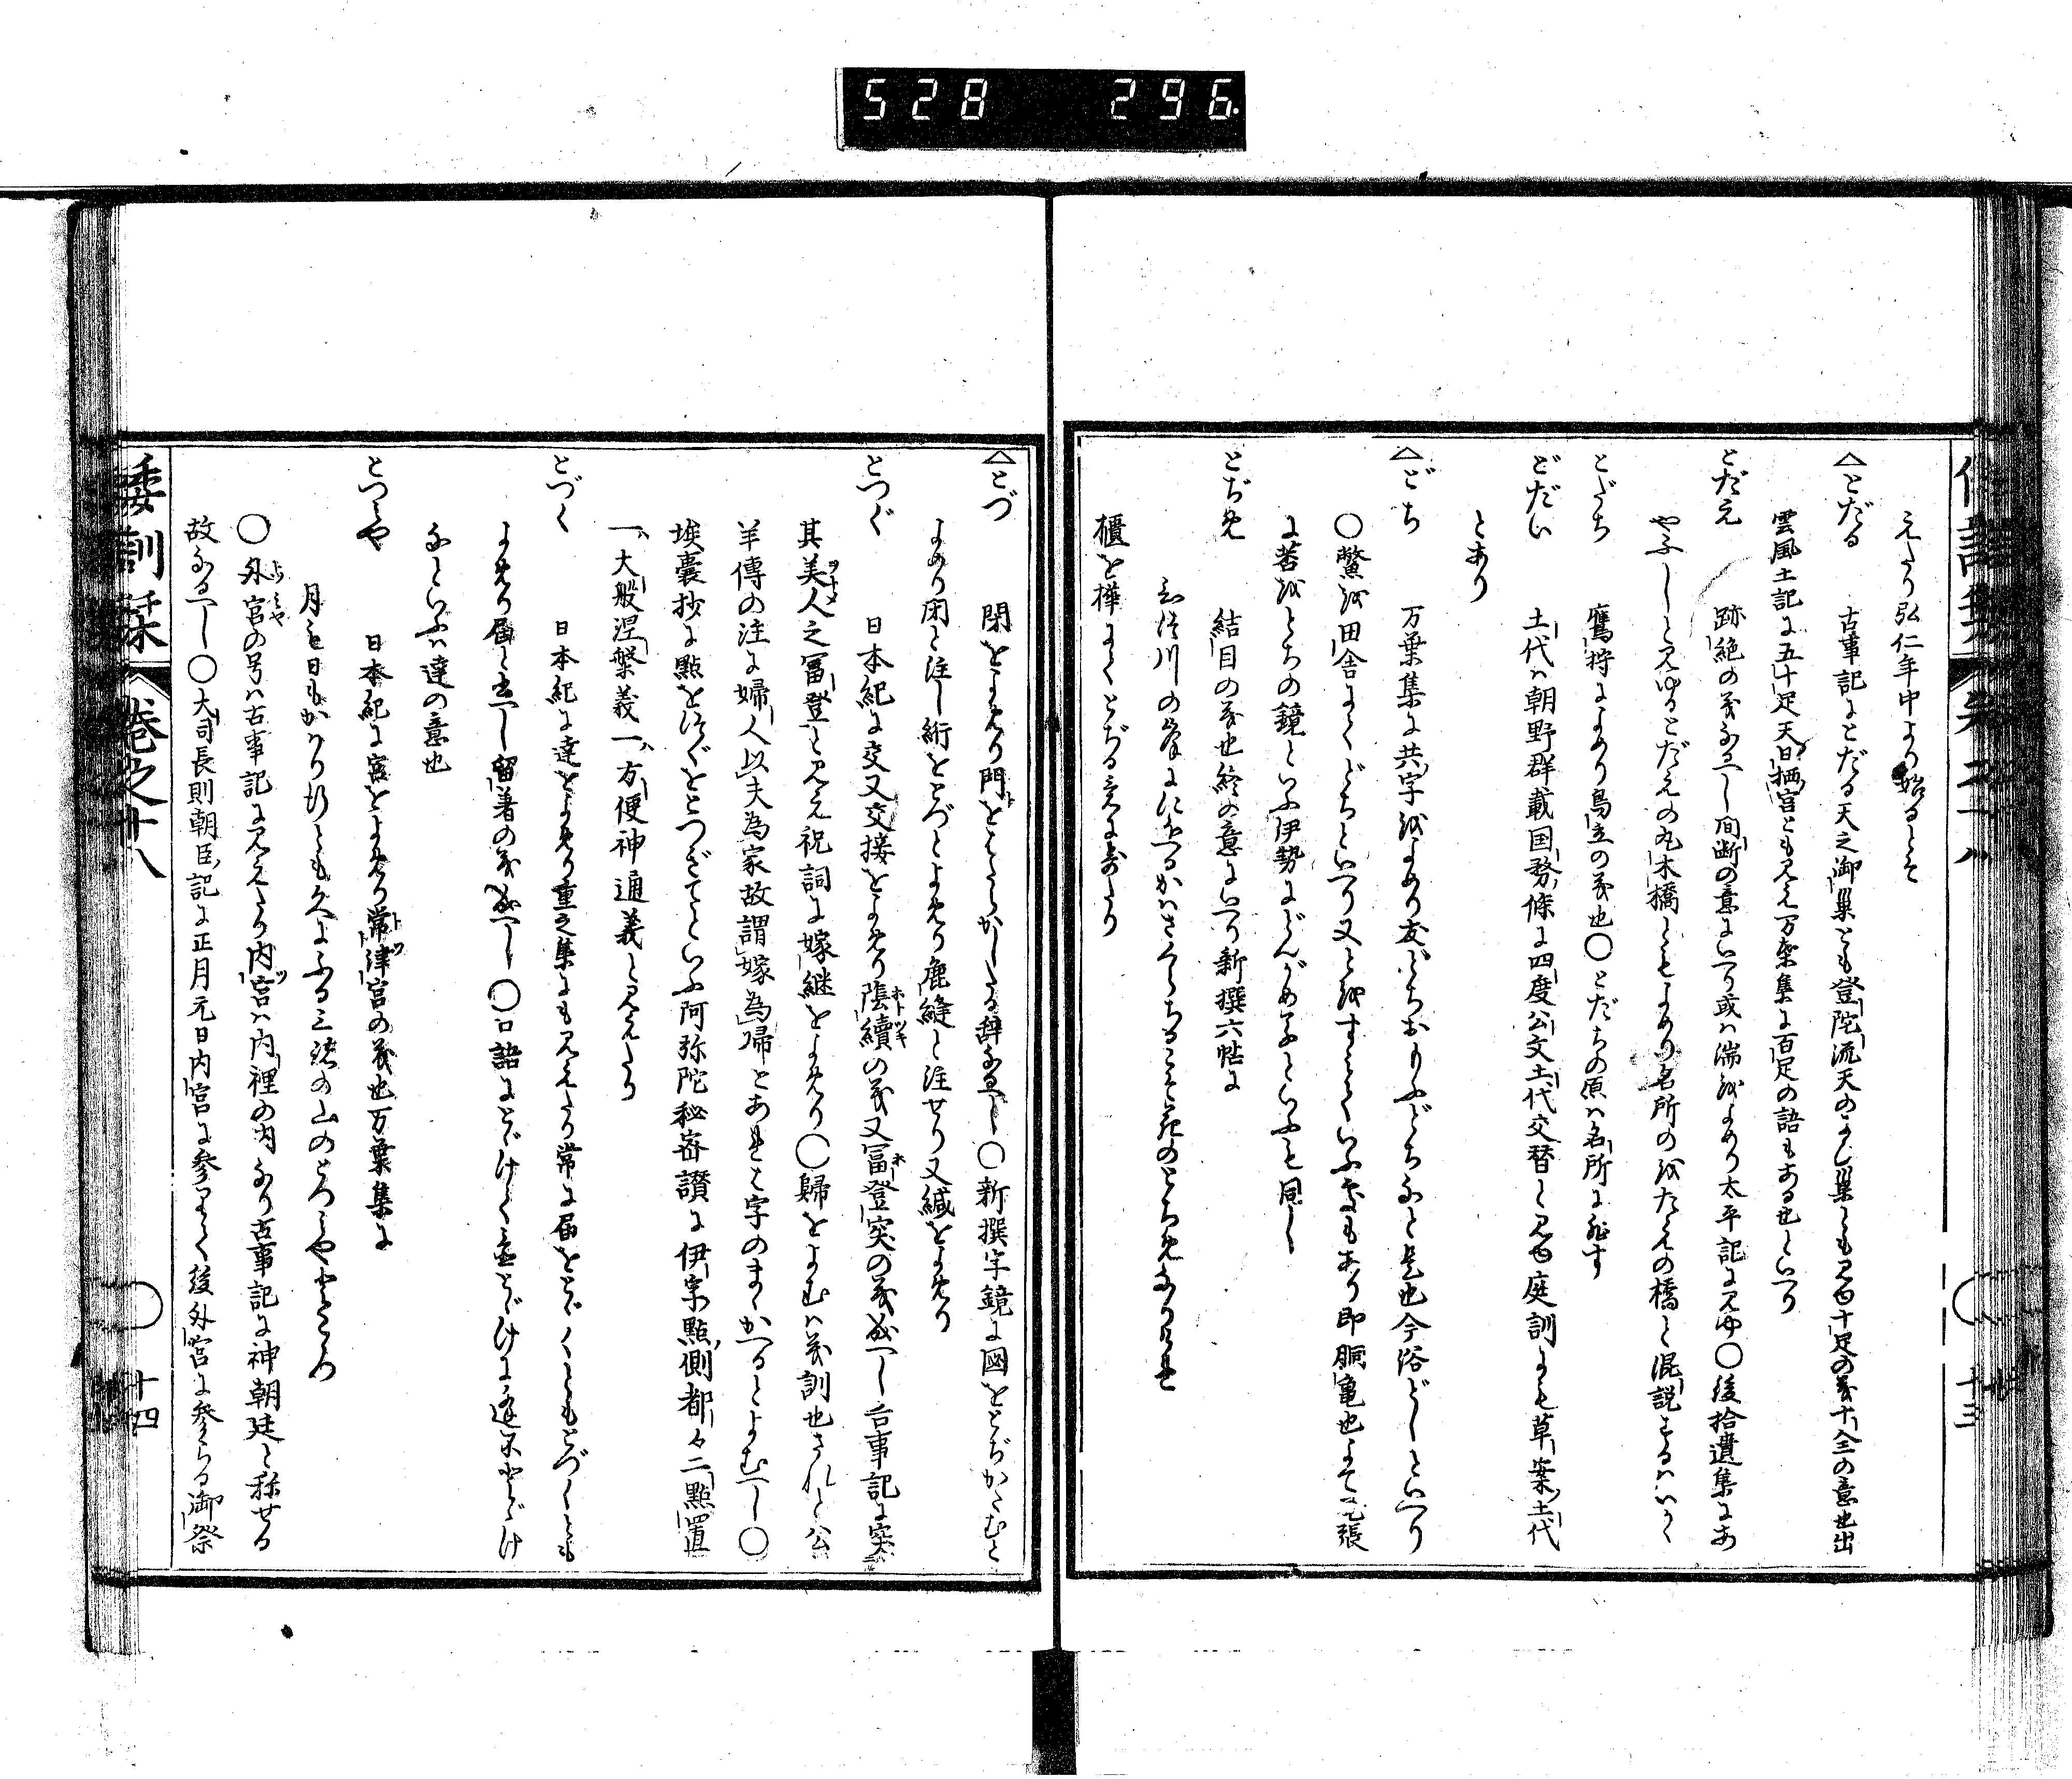 528 296
えたり弘仁年中より始るとそ
△とだる 古事記にとだる天之御巣とも登陀流天のよし巣とも見ゆ十足の義十全の意也出
雲風土記に五十足天日栖宮とも見え万葉集に百足の語もある也といへり
とだえ 跡絶の義なるへし間断の意にいへり或ハ湍をよめり太平記に見ゆ○後拾遺集にあ
やふしと見ゆるとだえの丸木橋ともよめり名所のをたえの橋と混説するハいかゝ
とだち 鷹狩によめり鳥立の義也○とだちの原ハ名所に非す
どだい 土代ハ朝野群載国務條に四度公文土代交替と見ゆ庭訓にも草案土代
とあり
△どち 万葉集に共字をよめり友どちおもふどちなと是也今俗どしといへり
○鼈を田舎にてどちといへり又とをすともいふ処もあり即胴亀也よて尾張
に苔をとちの鏡といふ伊勢にどんがめ草といふも同し
とぢめ 結目の義也終の意にいへり新撰六帖に
櫃を樺にてとぢる意に寄たり
△とづ 閉をよめり門をはたらかしたる辞なるへし○新撰字鏡に圀をとぢかたむと
よめり閉と注し絎をとづとよめり麁縫と注せり又緘をよめり
とつぐ 日本紀に交又交接をよめり陰續の義又冨登突の義成へし古事記に突
其美人之冨登と見え祝詞に嫁継をよめり○歸をよむハ義訓也されと公
羊傳の注に婦人以夫為家故謂嫁為帰とあれは字のまゝかへるとよむへし○
埃嚢抄に點をつぐをとつざてといふ阿弥陀秘密讃に伊字點側都々二點置
一大般涅槃義一方便神通義と見えたり
とづく 日本紀に達をよめり重之集にも見えたり常に届をとゞくともとづくとも
よめり届と書へし留著の義成へし○口語にとゞけて金とゞけに進不とゞけ
なといふハ達の意也
とつみや 日本紀に宮をよめり常津宮の義也万葉集に
月も日もかハり行とも久にふる三諸の山のとつみやところ
○外宮の号ハ古事記に見えたり内宮ハ内裡の内なり古事記に神朝廷と称せる
故なるへし○大司長則朝臣記に正月元日内宮に参りて後外宮に参らる御祭
倭訓栞 巻之十八 十四
十三